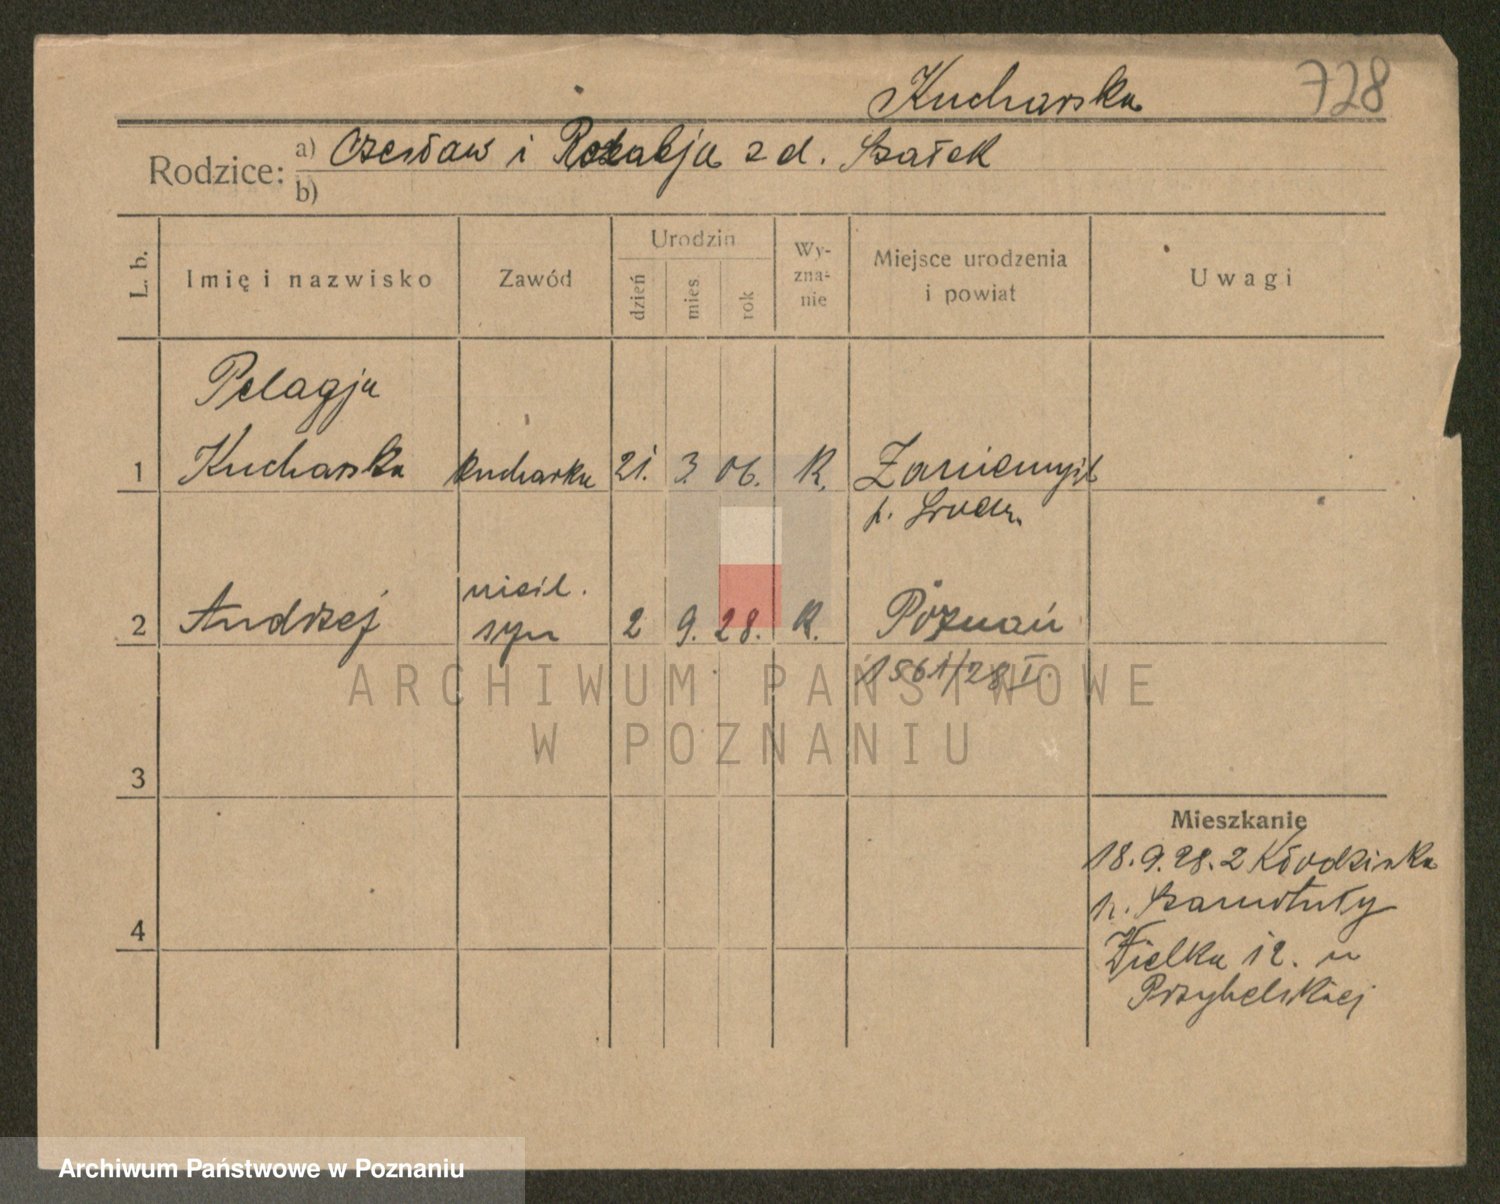 Kucharska 728
Rodzice: a) Czesław i Rozalja z d. Szałek
b)
L. b. Imię i nazwisko Zawód Urodzin dzień mies. rok Wy-zna-nie Miejsce urodzenia i powiat Uwagi
Pelagja
1 Kucharska kucharka 21. 3. 06. K. Zaniemyśl
p. Środa
nieśl.
2 Andrzej syn 2 9. 28. K. Poznań
1561/28 I.
ARCHIWUM PAŃSTWOWE
W POZNANIU
3
Mieszkanie
18.9.28. z
p. Szamotuły
4
Wielka 12. u
Przybelskiej
Archiwum Państwowe w Poznaniu